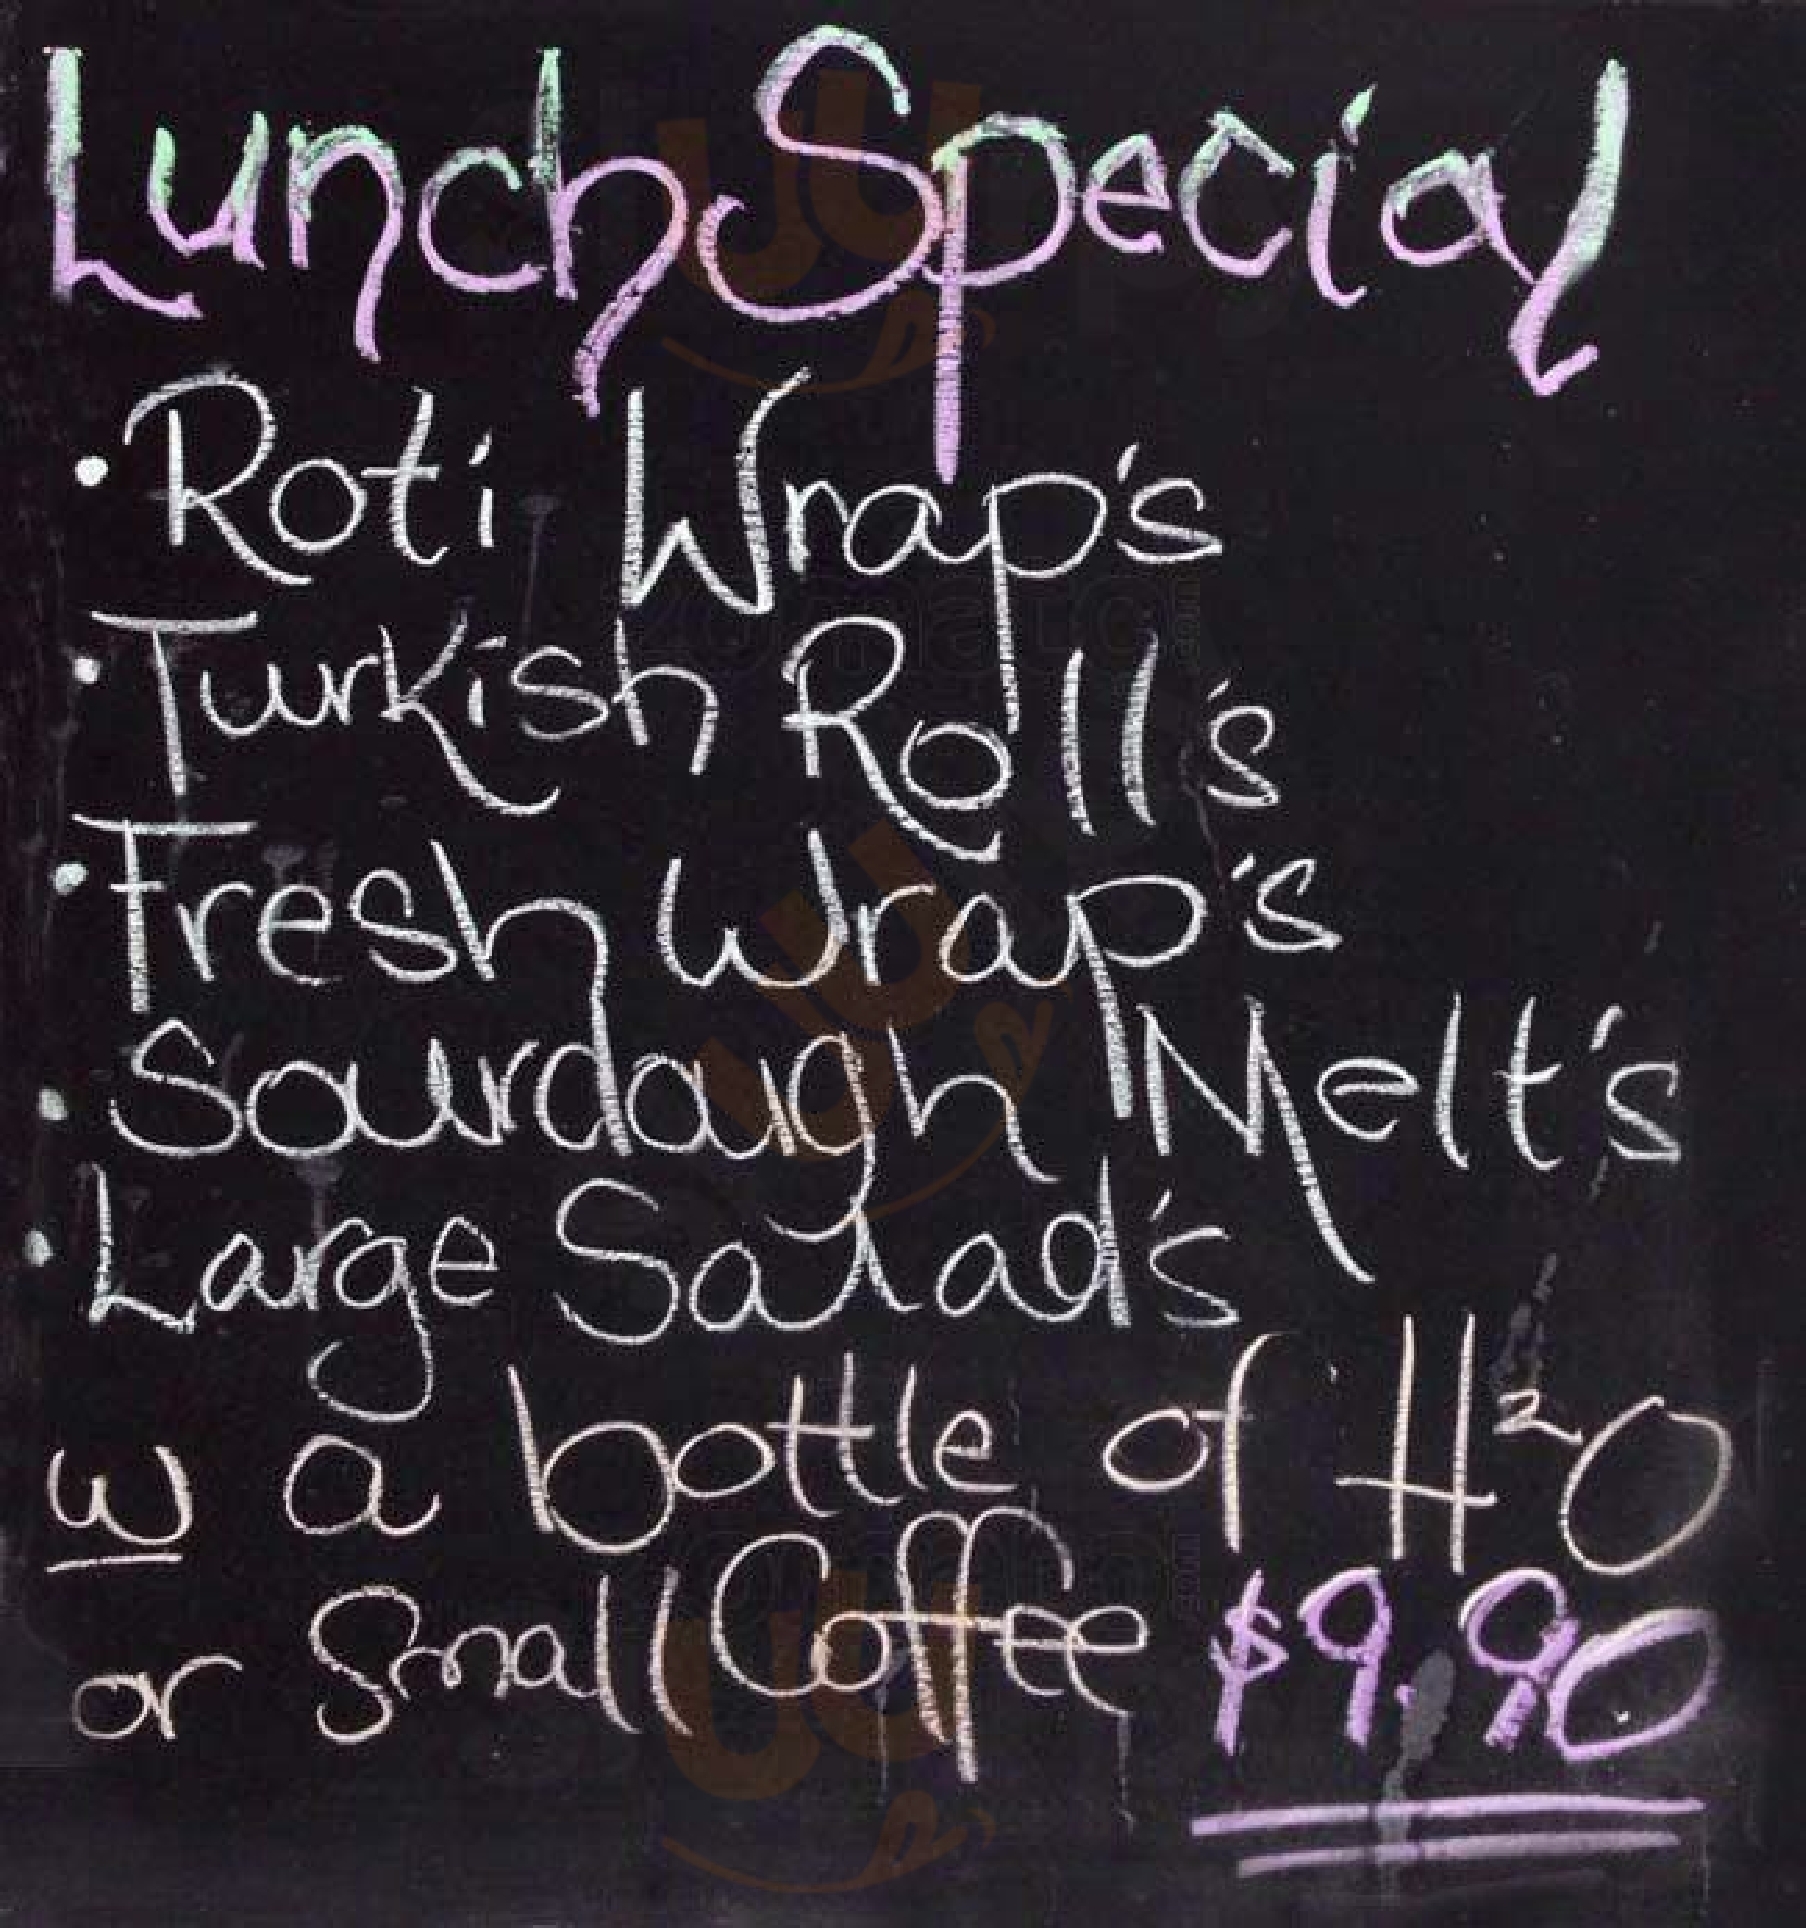 Lunch Special
• Roti Wrap's
• Turkish Roll's
• Fresh Wrap's
• Sourdough Melt's
• Large Salad's
w a bottle of H²O
or Small Coffee $9.90